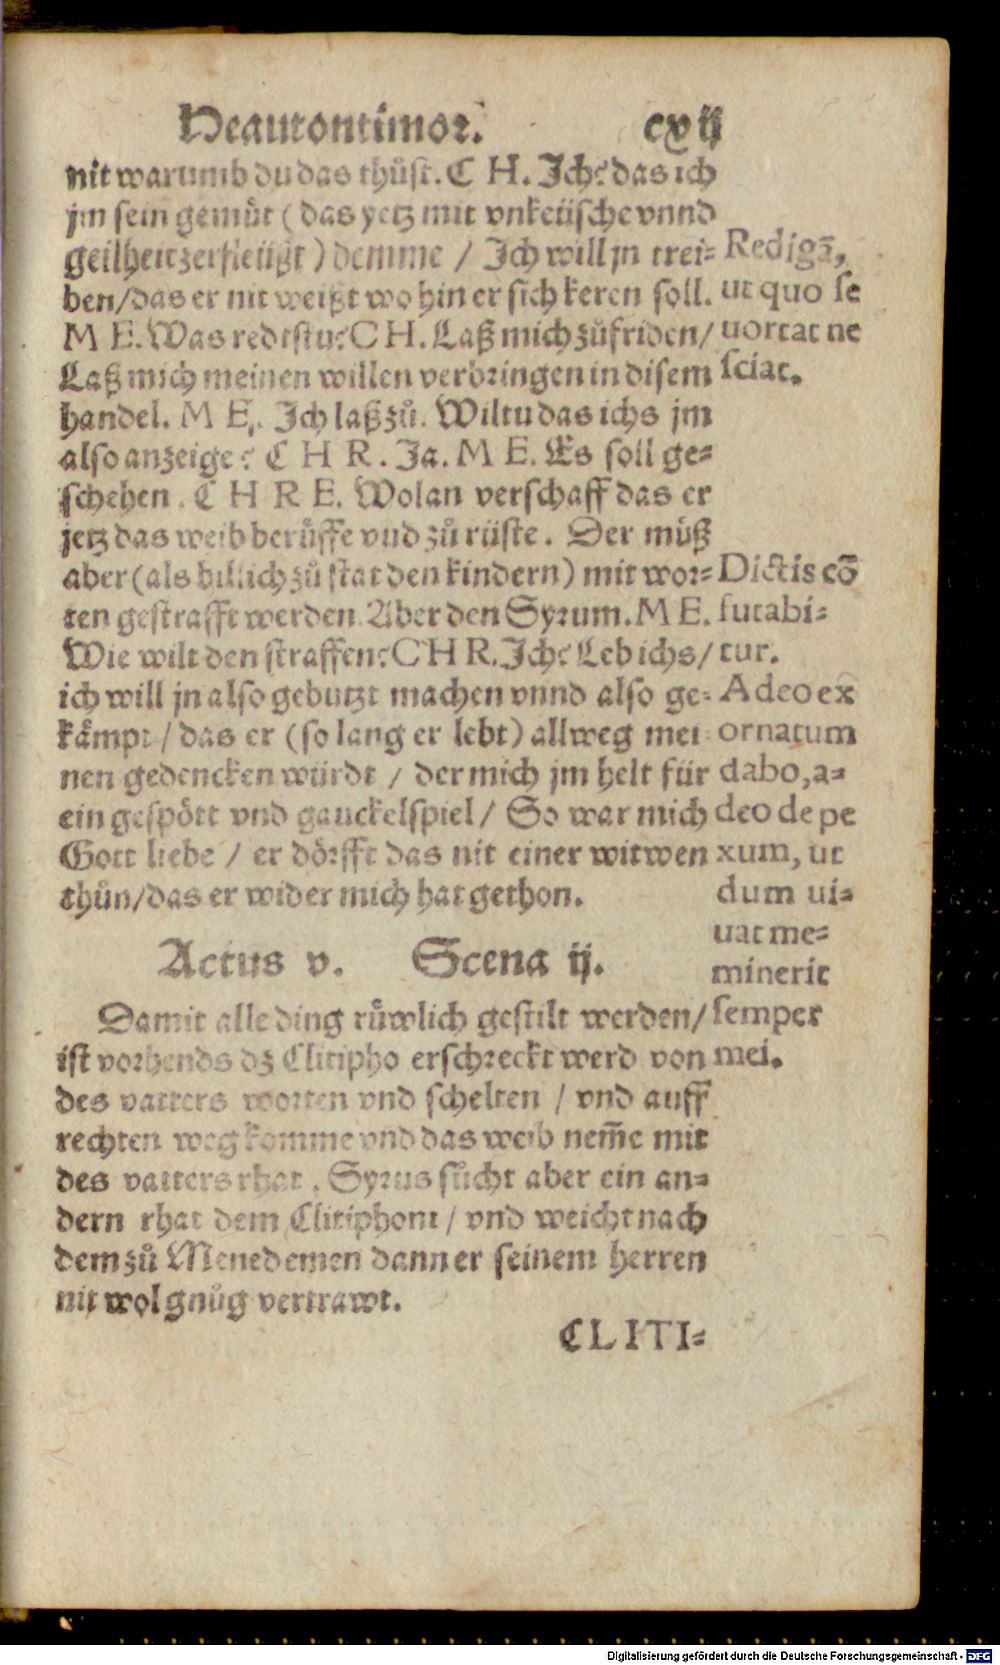 Heautontimor. cxij
nit warumb du das thůst. C H. Ich? das ich
jm sein gemüt (das yetz mit vnkeüsche vnnd
geilheit zerfleüßt) demme / Ich will jn trei-
ben/das er nit weißt wo hin er sich keren soll.
M E. Was redtstu? C H. Laß mich zůfriden/
Laß mich meinen willen verbringen in disem
handel. M E. Ich laß zů. Wiltu das ichs jm
also anzeige? C H R. Ja. M E. Es soll ge-
schehen. C H R E. Wolan verschaff das er
jetz das weib berüffe vnd zů rüste. Der můß
aber (als billich zů stat den kindern) mit wor-
ten gestrafft werden. Aber den Syrum. M E.
Wie wilt den straffen? C H R. Ich? Leb ichs/
ich will jn also gebutzt machen vnnd also ge-
kämpt / das er (so lang er lebt) allweg mei
nen gedencken würdt / der mich jm helt für
ein gespött vnd gauckelspiel / So war mich
Gott liebe / er dörfft das nit einer witwen
thůn/das er wider mich hat gethon.
Redigā,
ut quo se
uortat ne
sciat.
Dictis cō
futabi-
tur.
Adeo ex
ornatum
dabo, a-
deo de pe
xum, ut
dum ui-
uat me-
minerit
semper
mei.
Actus v. Scena ij.
Damit alle ding rüwlich gestilt werden/
ist vorhends dz Clitipho erschreckt werd von
des vatters worten vnd schelten / vnd auff
rechten weg komme vnd das weib nem̄e mit
des vatters rhat. Syrus sůcht aber ein an-
dern rhat dem Clitiphoni / vnd weicht nach
dem zů Menedemen dann er seinem herren
nit wol gnůg vertrawt.
CLITI-
Digitalisierung gefördert durch die Deutsche Forschungsgemeinschaft - DFG